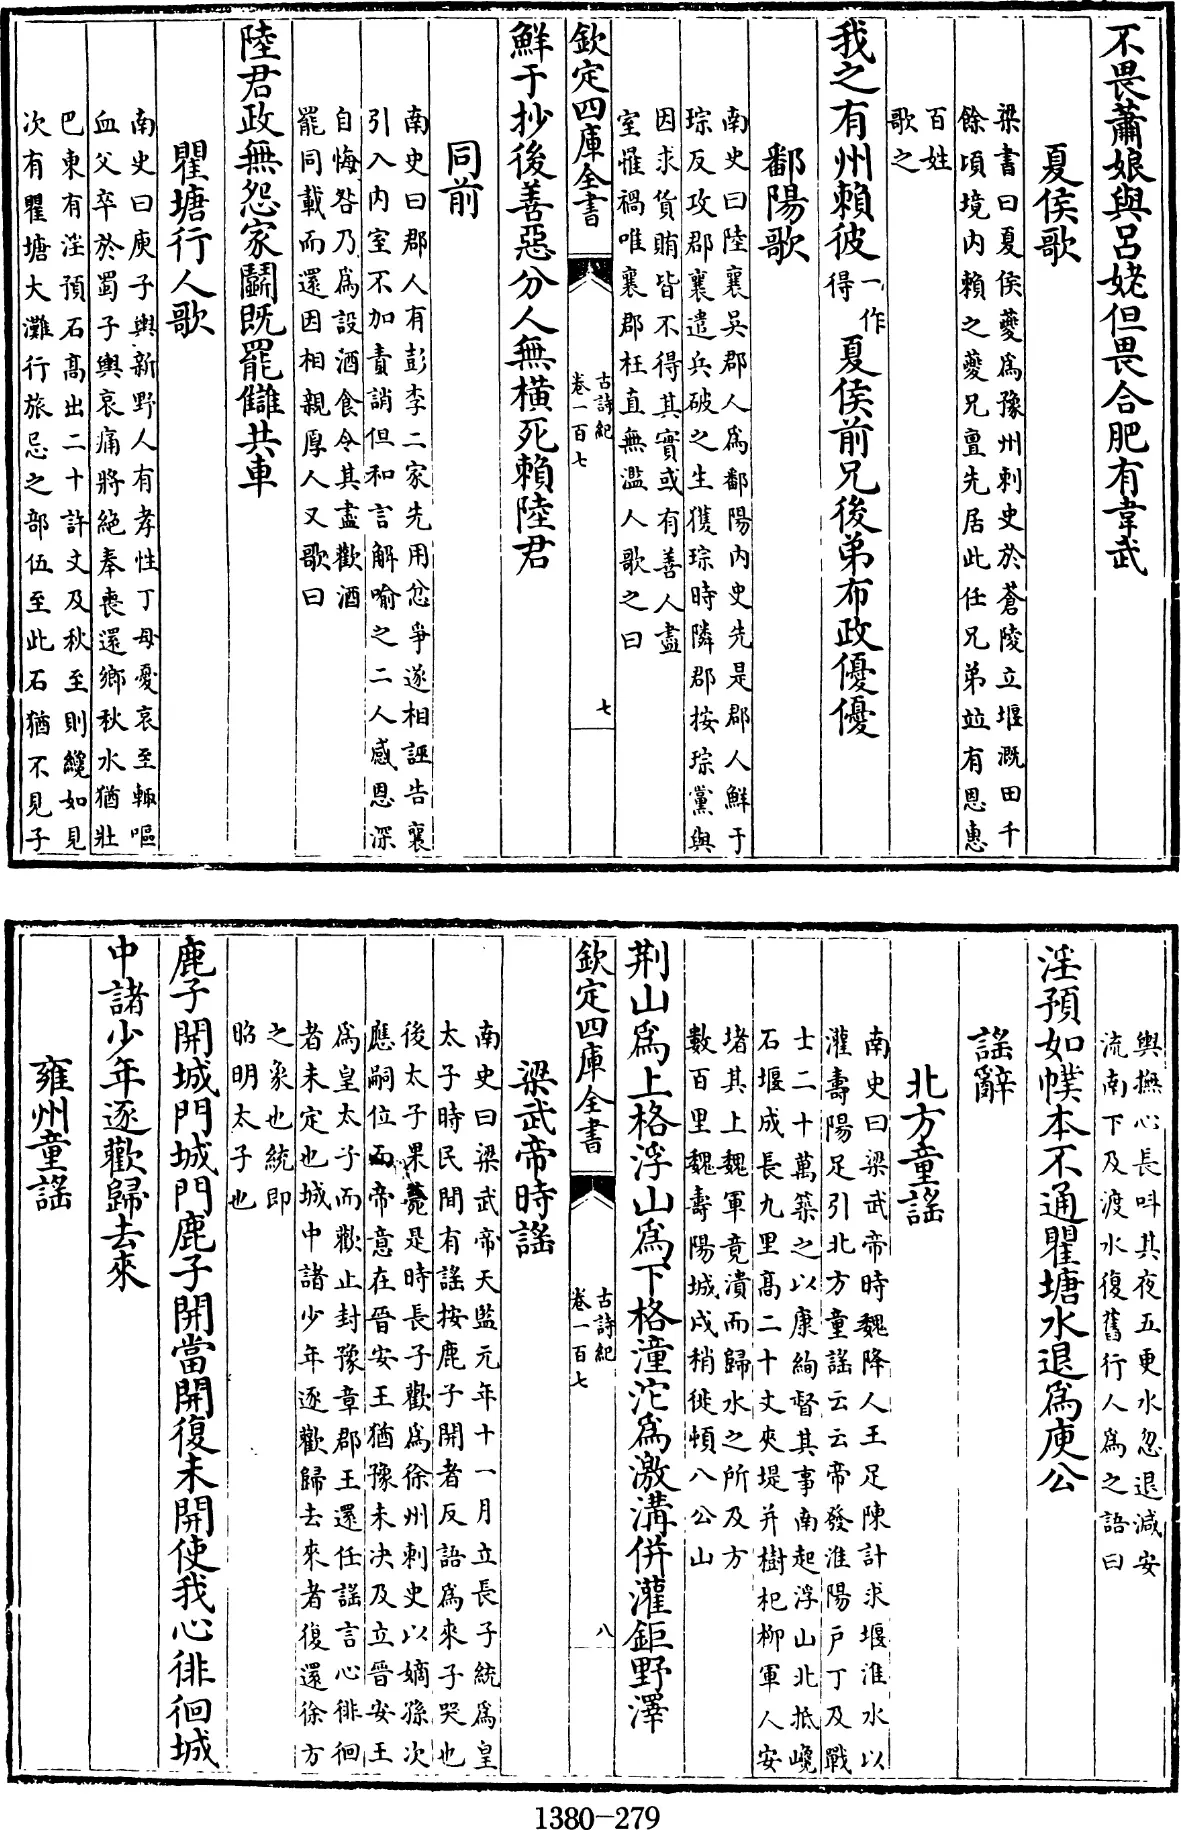 不畏蕭娘與呂姥但畏合肥有韋武
夏侯歌
梁書曰夏侯夔爲豫州刺史於蒼陵立堰溉田千
餘頃境内賴之夔兄亶先居此任兄弟竝有恩惠
百姓
歌之
我之有州賴彼一作得夏侯前兄後弟布政優優
鄱陽歌
南史曰陸襄吳郡人爲鄱陽内史先是郡人鮮于
琮反攻郡襄遣兵破之生獲琮時隣郡按琮黨與
因求貨賄皆不得其實或有善人盡
室罹禍唯襄郡枉直無濫人歌之曰
欽定四庫全書
古詩紀
卷一百七
七
鮮于抄後善惡分人無橫死賴陸君
同前
南史曰郡人有彭李二家先用忿爭遂相誣告襄
引入内室不加責誚但和言解喻之二人感恩深
自悔咎乃爲設酒食令其盡歡酒
罷同載而還因相親厚人又歌曰
陸君政無怨家鬭既罷讎共車
瞿塘行人歌
南史曰庾子輿新野人有孝性丁母憂哀至輒嘔
血父卒於蜀子輿哀痛將絶奉喪還鄉秋水猶壯
巴東有淫預石高出二十許丈及秋至則纔如見
次有瞿塘大灘行旅忌之部伍至此石猶不見子
輿撫心長呌其夜五更水忽退減安
流南下及渡水復舊行人爲之語曰
淫預如幞本不通瞿塘水退爲庾公
謡辭
北方童謡
南史曰梁武帝時魏降人王足陳計求堰淮水以
灌壽陽足引北方童謡云云帝發淮陽戸丁及戰
士二十萬築之以康絢督其事南起浮山北抵巉
石堰成長九里高二十丈夾堤并樹杞柳軍人安
堵其上魏軍竟潰而歸水之所及方
數百里魏壽陽城戍稍徙頓八公山
荆山爲上格浮山爲下格潼沱爲激溝併灌鉅野澤
欽定四庫全書
古詩紀
卷一百七
八
梁武帝時謡
南史曰梁武帝天監元年十一月立長子統爲皇
太子時民間有謡按鹿子開者反語爲來子哭也
後太子果薨是時長子歡爲徐州刺史以嫡孫次
應嗣位而帝意在晉安王猶豫未决及立晉安王
爲皇太子而歡止封豫章郡王還任謡言心徘徊
者未定也城中諸少年逐歡歸去來者復還徐方
之象也統即
昭明太子也
鹿子開城門城門鹿子開當開復未開使我心徘徊城
中諸少年逐歡歸去來
雍州童謡
1380-279